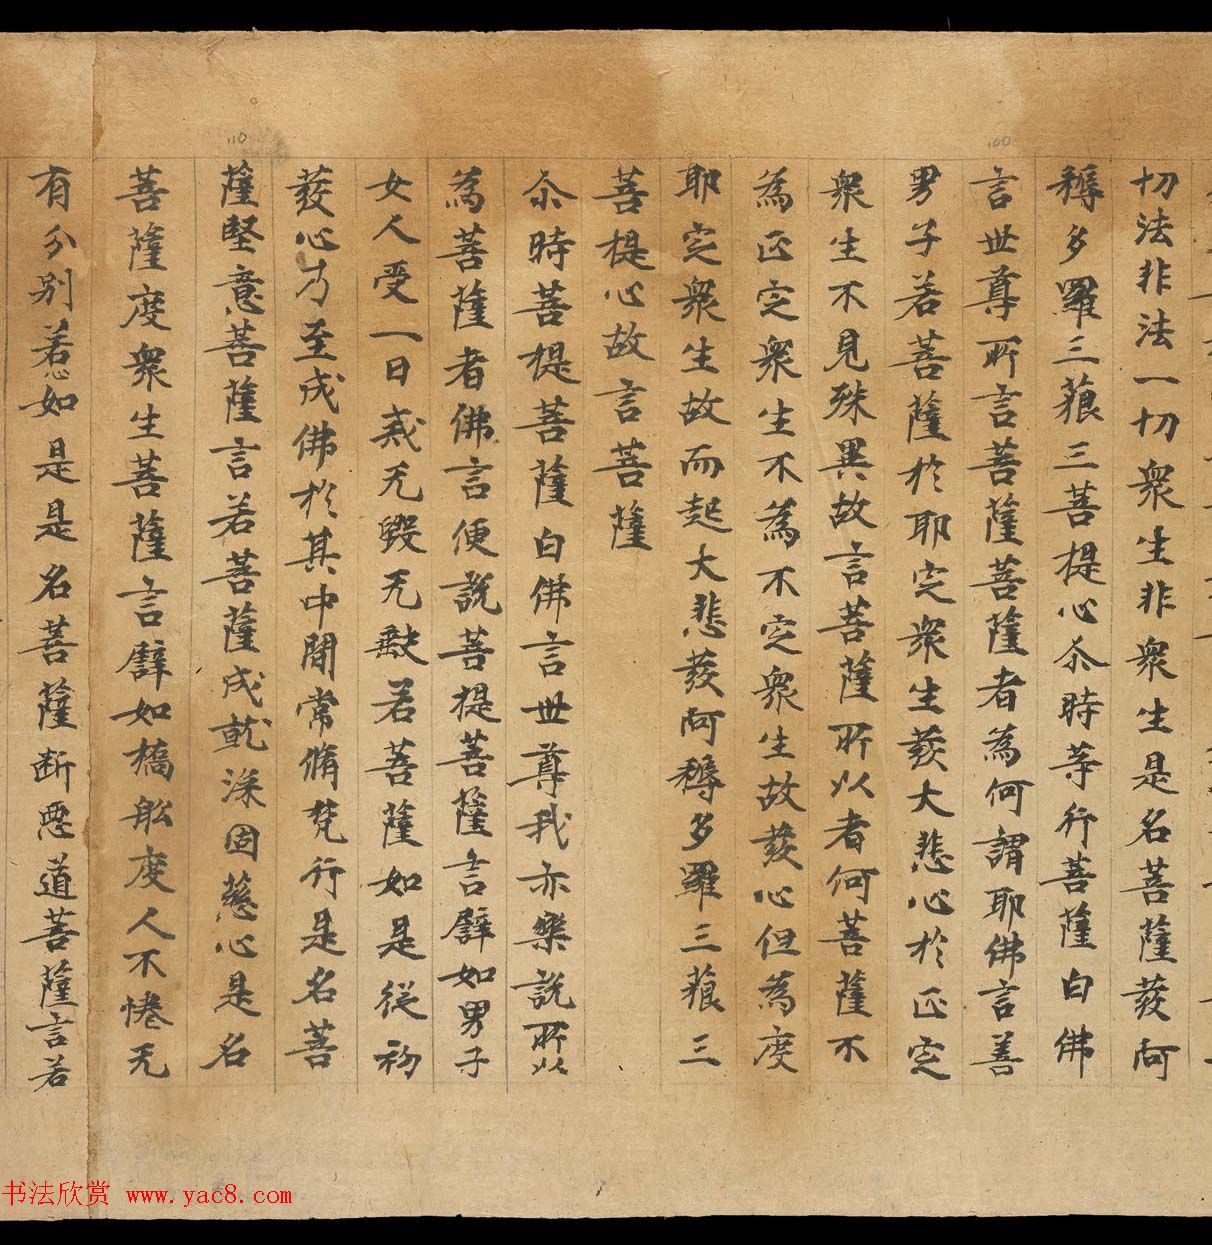 切法非法一切衆生非衆生是名菩薩發阿
耨多羅三藐三菩提心尒時等行菩薩白佛
言世尊所言菩薩菩薩者為何謂耶佛言善
男子若菩薩於耶定衆生發大悲心於正定
衆生不見殊異故言菩薩所以者何菩薩不
為正定衆生不為不定衆生故發心但為度
耶定衆生故而起大悲發阿耨多羅三藐三
菩提心故言菩薩
尒時菩提菩薩白佛言世尊我亦樂說所以
為菩薩者佛言便說菩提菩薩言譬如男子
女人受一日戒无毀无缺若菩薩如是從初
發心乃至成佛於其中間常脩梵行是名菩
薩堅意菩薩言若菩薩成就深固慈心是名
菩薩度衆生菩薩言譬如橋船度人不惓无
有分別若如是是名菩薩断惡道菩薩言若
110
100
书法欣赏 www.yac8.com